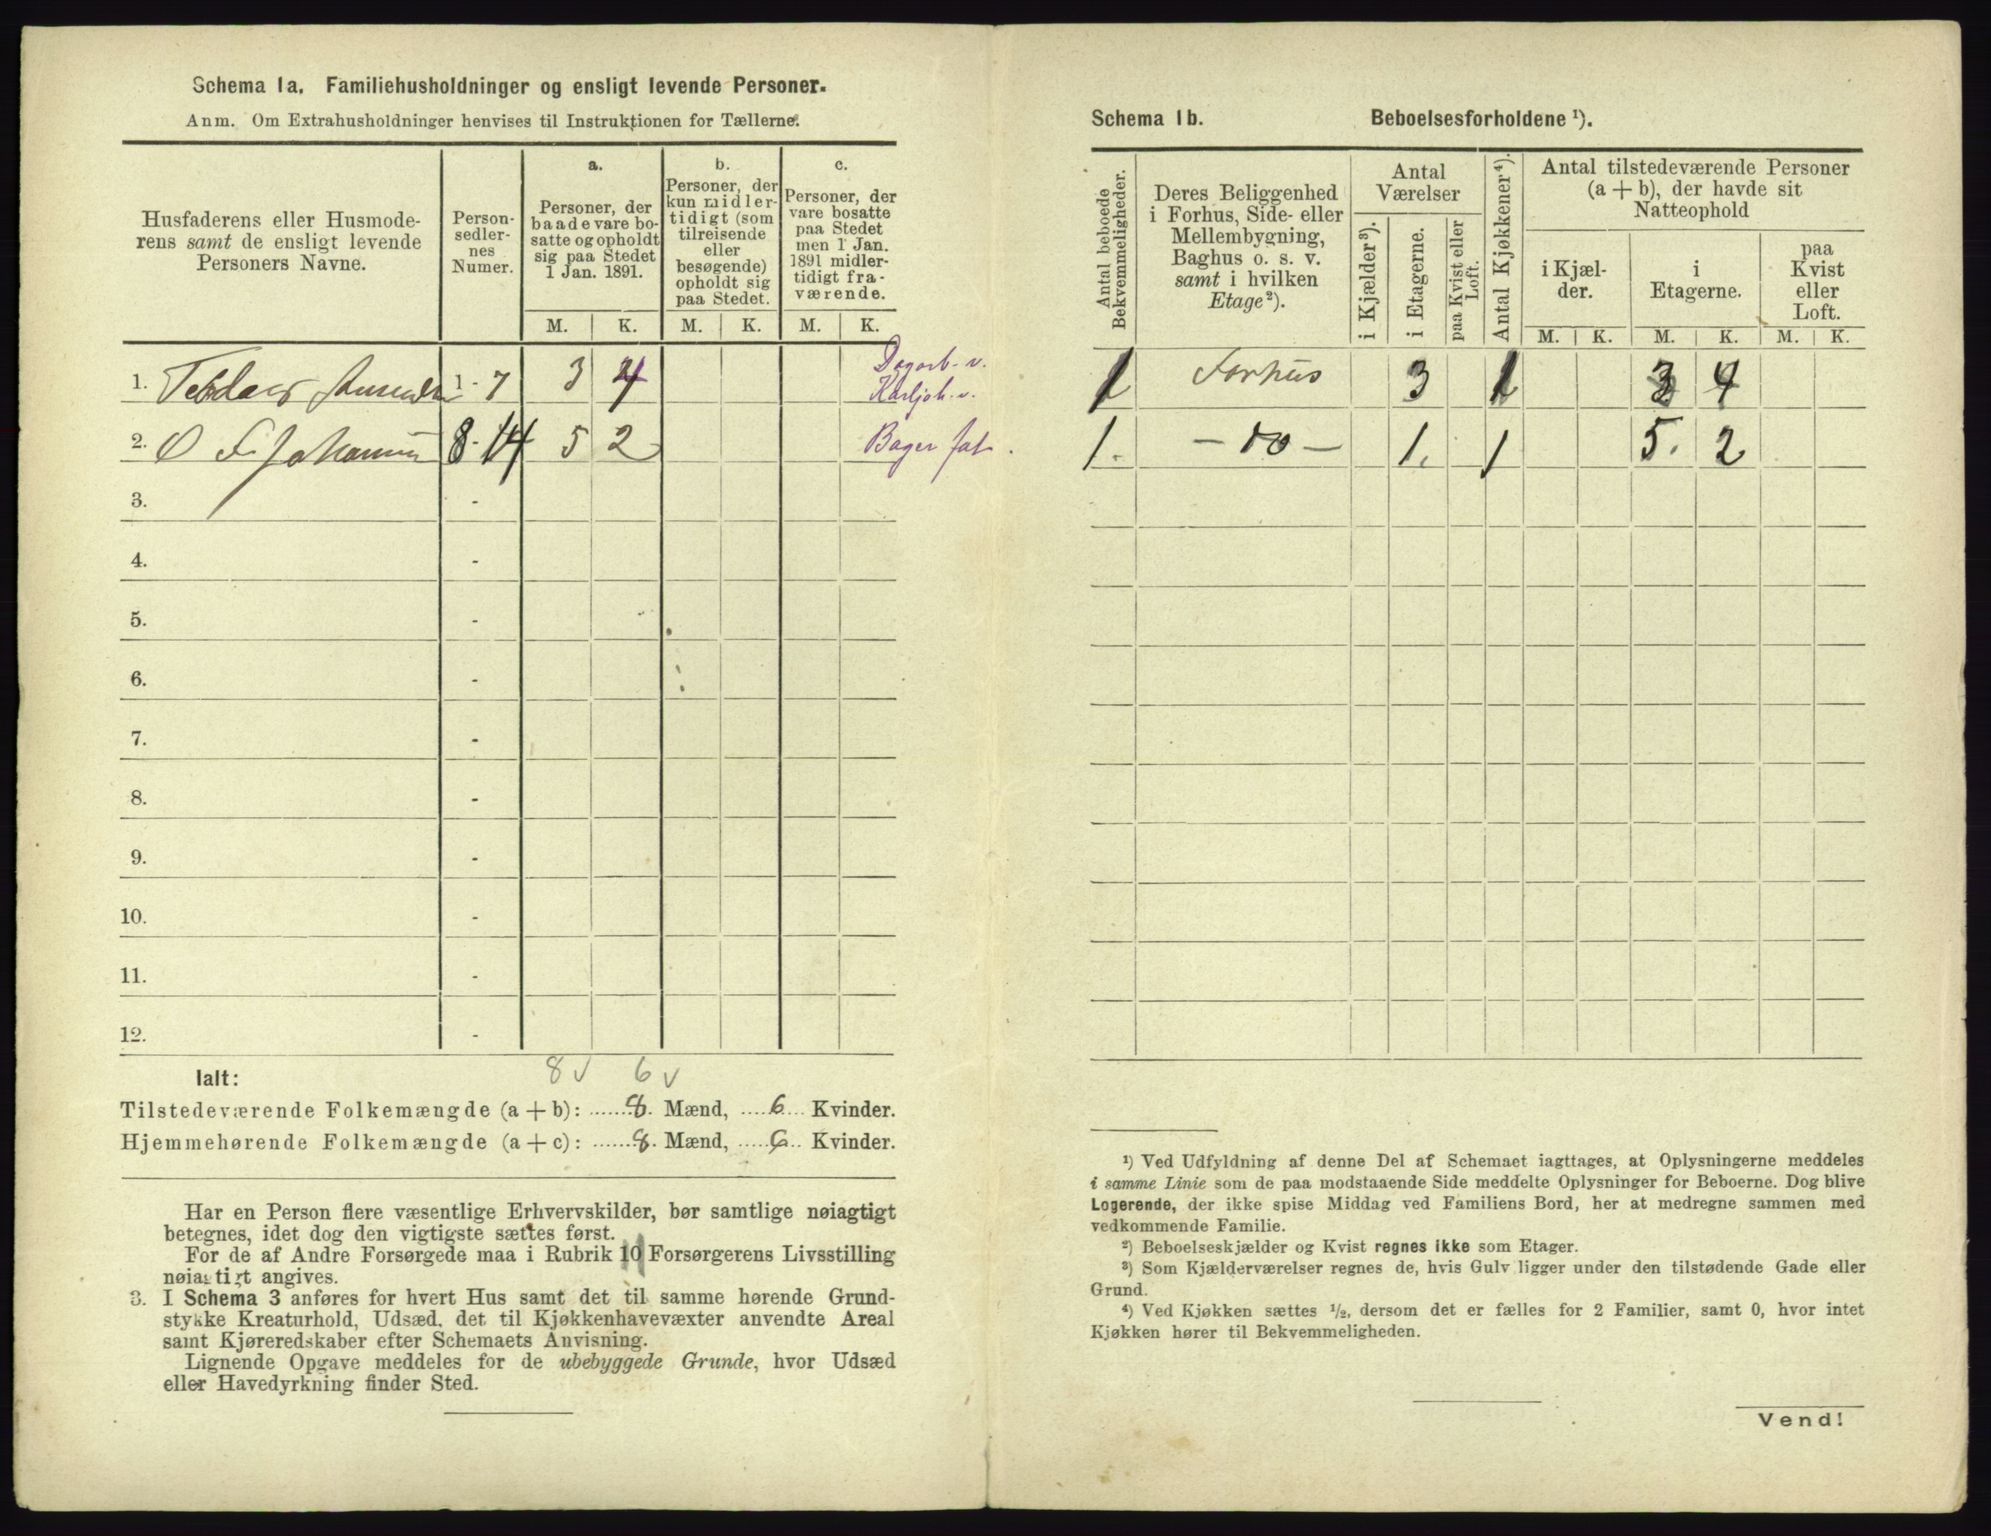 Schema 1a. Familiehusholdninger og ensligt levende Personer.
Anm. Om Extrahusholdninger henvises til Instruktionen for Tællerne.
Husfaderens eller Husmode-
rens samt de ensligt levende
Personers Navne.
Person-
sedler-
nes
Numer.
a.
Personer, der
baade vare bo-
satte og opholdt
sig paa Stedet
1 Jan. 1891.
b.
Personer, der
kun midler-
tidigt (som
tilreisende
eller
besøgende)
opholdt sig
paa Stedet.
c.
Personer, der
vare bosatte
paa Stedet
men 1 Jan.
1891 midler-
tidigt fra-
værende.
M. K. M. K. M. K.
1. 1 - 7 3 4 Dagarb. v.
Karljoh. v.
2. O F Johannsen 8 - 14 5 2 Bager
3. -
4. -
5. -
6. -
7. -
8. -
9. -
10. -
11. -
12. -
8 v 6 v
Ialt:
Tilstedeværende Folkemængde (a + b): 8. Mænd, 6 Kvinder.
Hjemmehørende Folkemængde (a + c): 8. Mænd, 6 Kvinder.
Har en Person flere væsentlige Erhvervskilder, bør samtlige nøiagtigt
betegnes, idet dog den vigtigste sættes først.
For de af Andre Forsørgede maa i Rubrik 10 Forsørgerens Livsstilling
nøiagtigt angives.
3. I Schema 3 anføres for hvert Hus samt det til samme hørende Grund-
stykke Kreaturhold, Udsæd, det til Kjøkkenhavevæxter anvendte Areal
samt Kjøreredskaber efter Schemaets Anvisning.
Lignende Opgave meddeles for de ubebyggede Grunde, hvor Udsæd
eller Havedyrkning finder Sted.
Schema 1b. Beboelsesforholdene ¹).
Antal beboede
Bekvemmeligheder.
Deres Beliggenhed
i Forhus, Side- eller
Mellembygning,
Baghus o. s. v.
samt i hvilken
Etage²).
Antal
Værelser
i Kjælder³).
i Etagerne.
paa Kvist eller
Loft.
Antal Kjøkkener⁴).
Antal tilstedeværende Personer
(a + b), der havde sit
Natteophold
i Kjæl-
der.
i
Etagerne.
paa
Kvist
eller
Loft.
M. K. M. K. M. K.
1 Forhus 3 1 3 4
1. — do — 1. 1 5. 2
¹) Ved Udfyldning af denne Del af Schemaet iagttages, at Oplysningerne meddeles
i samme Linie som de paa modstaaende Side meddelte Oplysninger for Beboerne. Dog blive
Logerende, der ikke spise Middag ved Familiens Bord, her at medregne sammen med
vedkommende Familie.
²) Beboelseskjælder og Kvist regnes ikke som Etager.
³) Som Kjælderværelser regnes de, hvis Gulv ligger under den tilstødende Gade eller
Grund.
⁴) Ved Kjøkken sættes ½, dersom det er fælles for 2 Familier, samt 0, hvor intet
Kjøkken hører til Bekvemmeligheden.
Vend!